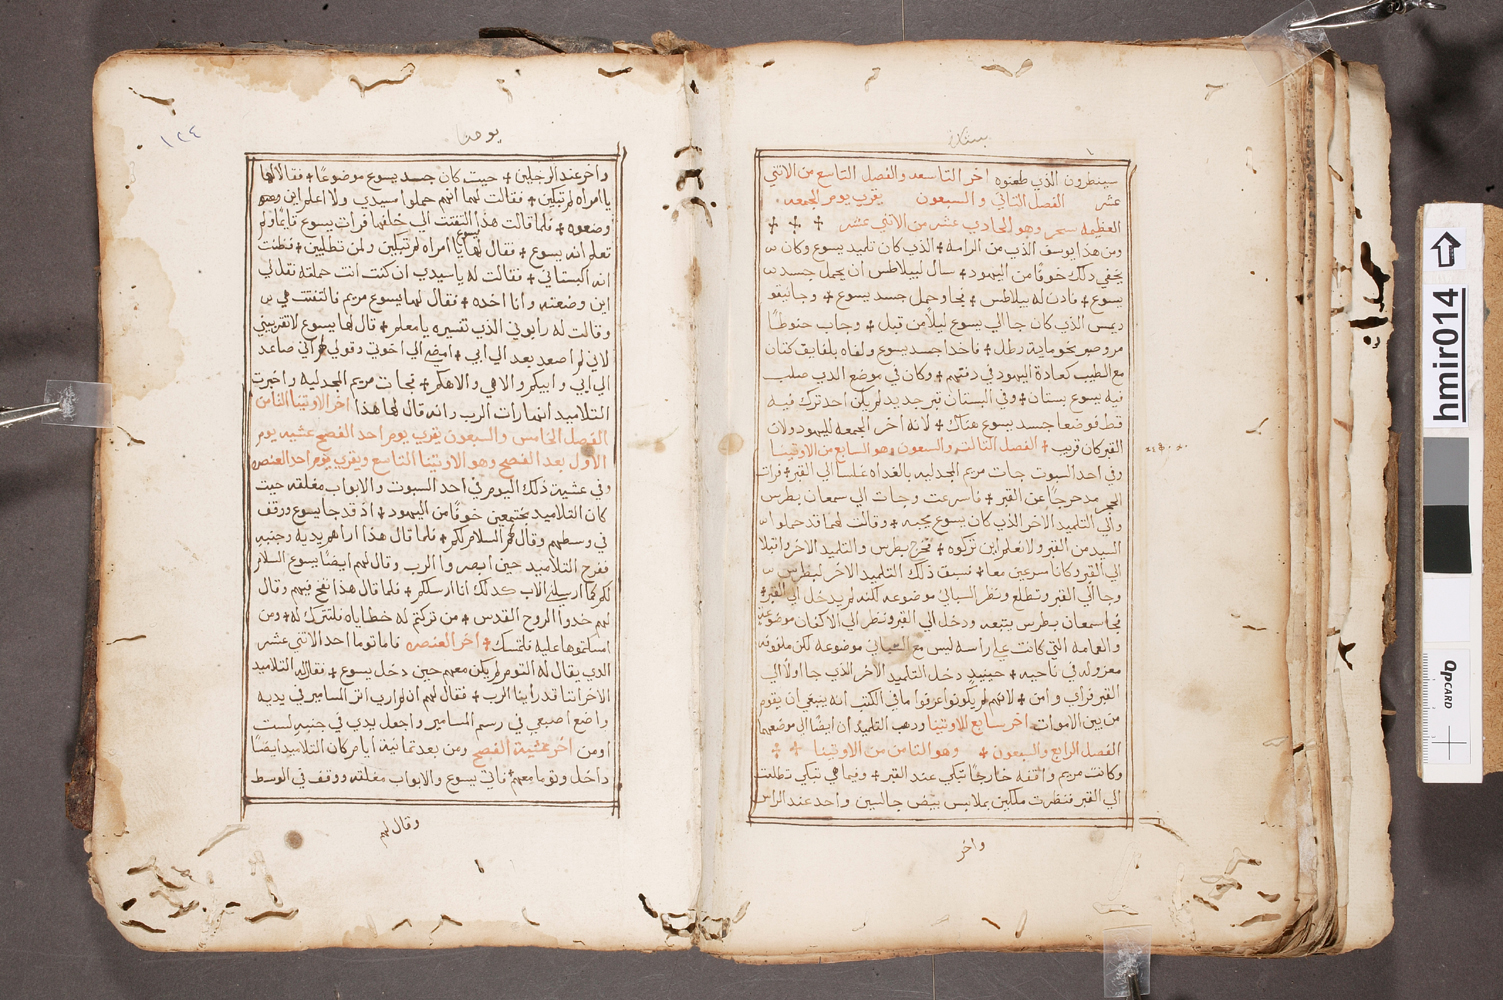 بشاره
سينظرون الذي طعنوه اخر التاسعه والفصل التاسع من الاثني
عشر الفصل الثاني والسبعون يقرب يوم الجمعه
العظيمه سحر وهو الحادي عشر من الاثني عشر
ومن هذا يوسف الذي من الرامه الذي كان تلميد يسوع وكان
يخفي دلك خوفا من اليهود سال لبيلاطس ان يحمل جسد
يسوع فادن له بيلاطس فجا وحمل جسد يسوع وجا نيقو
ديمس الذي كان جا الي يسوع ليلا من قبل وجاب حنوطا
مر وصبر نحو ماية رطل فاخدا جسد يسوع ولفاه بلفايف كتان
مع الطيب كعادة اليهود في دفنهم وكان في موضع الدي صلب
فيه يسوع بستان وفي البستان قبر جديد لم يكن احد ترك فيه
قط فوضعا جسد يسوع هناك لانه اخر الجمعه لليهود ولان
القبر كان قريب الفصل التالت والسبعون وهو السابع من الاوتينا
وفي احد السبوت جات مريم المجدليه بالغداه غلسا الي القبر فرات
الحجر مدحرجا عن القبر فاسرعت وجات الي سمعان بطرس
والي التلميد الاخر الذي كان يسوع يحبه وقالت لهما قد حملوا
السيد من القبر ولا نعلم اين تركوه فخرج بطرس والتلميد الاخر واقبلا
الي القبر وكانا مسرعين معا فسبق ذلك التلميد الاخر لبطرس
وجا الي القبر وتطلع ونظر السباني موضوعه لكنه لم يدخل الي القبر
فجا سمعان بطرس يتبعه ودخل الي القبر ونظر الي الاكفان موضوعة
والعمامه التي كانت علي راسه ليس مع السباني موضوعه لكن ملفوفه
معزوله في ناحيه حينيد دخل التلميد الاخر الذي جا اولا الي
القبر فراي وامن لانهم لم يكونوا عرفوا ما في الكتب انه ينبغي ان يقوم
من بين الاموات اخر سابع الاوتينا ودهب التلميدان ايضا الي موضعهما
الفصل الرابع والسبعون وهو التامن من الاوتينا
وكانت مريم واقفه خارجا تبكي عند القبر وفيما هي تبكي تطلعت
الي القبر فنظرت ملكين بملابس بيض جالسين واحد عند الراس
واخر
يوحنا
١٢٤
واخر عند الرجلين حيت كان جسد يسوع موضوعا فقالا لها
يا امراه لم تبكين فقالت لهما انهم حملوا سيدي ولا اعلم اين
وضعوه فلما قالت هذا التفتت الي خلفها فرات يسوع قايما ولم
تعلم انه يسوع فقال لها يسوع يا امراه لم تبكين ولمن تطلبين فظنت
انه البستاني فقالت له يا سيدي ان كنت انت حملته فقل لي
اين وضعته وانا اخده فقال لها يسوع مريم فالتفتت هي
وقالت له رابوني الذي تفسيره يا معلم قال لها يسوع لا تقربيني
لاني لم اصعد بعد الي ابي امضي الي اخوتي وقولي لهم اني صاعد
الي ابي وابيكم والاهي والاهكم فجات مريم المجدليه واخبرت
التلاميد انها رات الرب وانه قال لها هذا اخر الاوتينا التامن
الفصل الخامس والسبعون يقرب يوم احد الفصح عشيه يوم
الاول بعد الفصح وهو الاوتينا التاسع ويقرب يوم احد العنصره
وفي عشية ذلك اليوم في احد السبوت والابواب مغلقه حيت
كان التلاميد مجتمعين خوفا من اليهود اذ قد جا يسوع ووقف
في وسطهم وقال لهم السلام لكم فلما قال هذا اراهم يديه وجنبه
ففرح التلاميد حين ابصروا الرب وقال لهم ايضا يسوع السلام
لكم كما ارسلني الاب كدلك انا ارسلكم فلما قال هذا نفخ فيهم وقال
لهم خدوا الروح القدس من تركتم له خطاياه فلتترك له ومن
امسكتموها عليه فلتمسك اخر العنصره فاما توما احد الاتني عشر
الدي يقال له التوم لم يكن معهم حين دخل يسوع فقال له التلاميد
الاخر اننا قد راينا الرب فقال لهم ان لم اري اتر المسامير في يديه
واضع اصبعي في رسم المسامير واجعل يدي في جنبه لست
اومن اخر عشية الفصح ومن بعد تمانية ايام كان التلاميد ايضا
داخل وتوما معهم فاتي يسوع والابواب مغلقه ووقف في الوسط
وقال لهم
hmir014
QP CARD